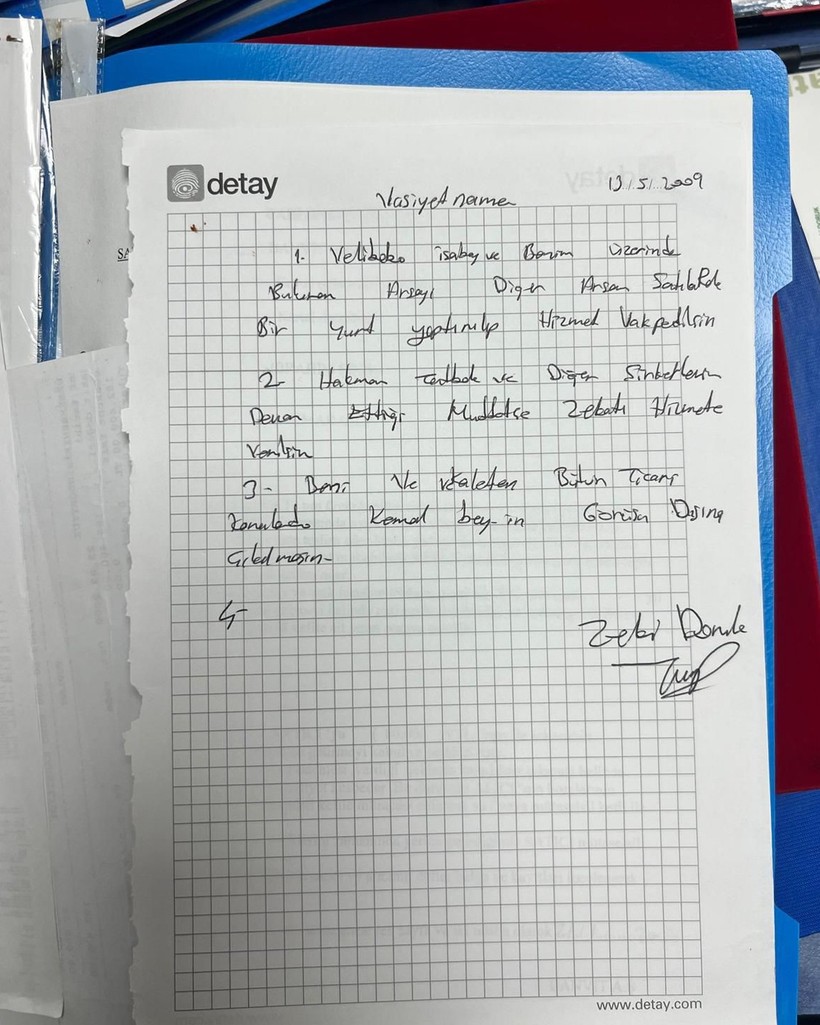 detay
13.5.2009
Vasiyet name
1. Velibaba isabey ve Benim üzerinde
Bulunan Arsayı Diğer Arsam Satılıkda
Bir yurt yaptırılıp Hizmet Vakpedilsin
2- Hakman ve Diğer Şirketlerin
Devam Ettiği Muddetse Zekatı Hizmete
Verilsin
3- Beni Ve vekaleten Bütün Ticari
konularda Kemal bey-in Görüşü Dışına
Çıkılmasın-
4-
Zeki
www.detay.com